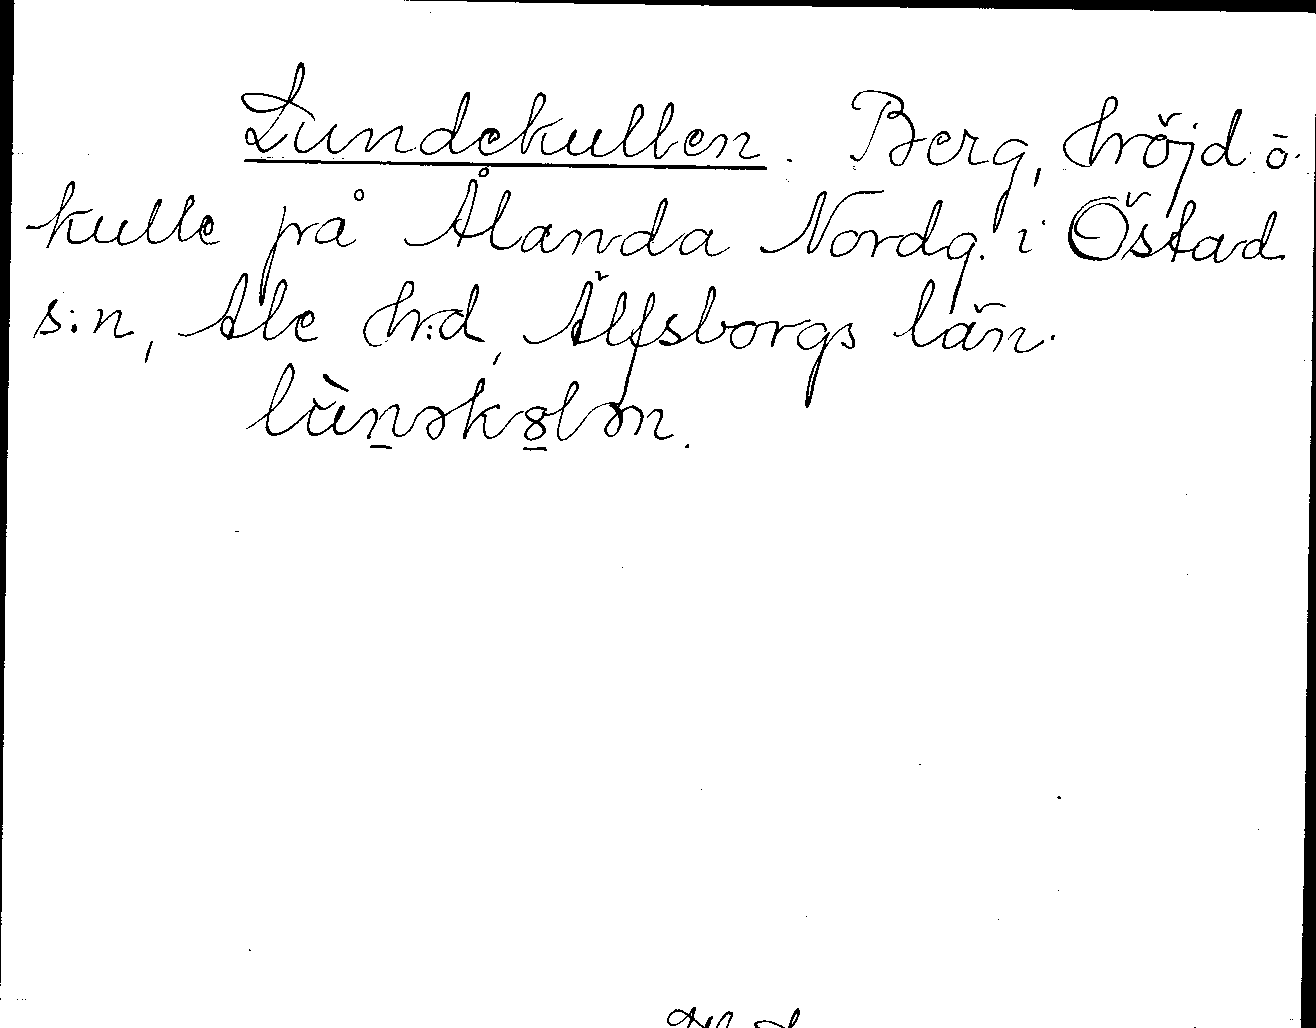 Lundekullen. Berg, höjd o.
kulle på Ålanda Nordg. i Östad
s:n, Ale h:d, Älfsborgs län.
lùn̲əkȣ̲lən.